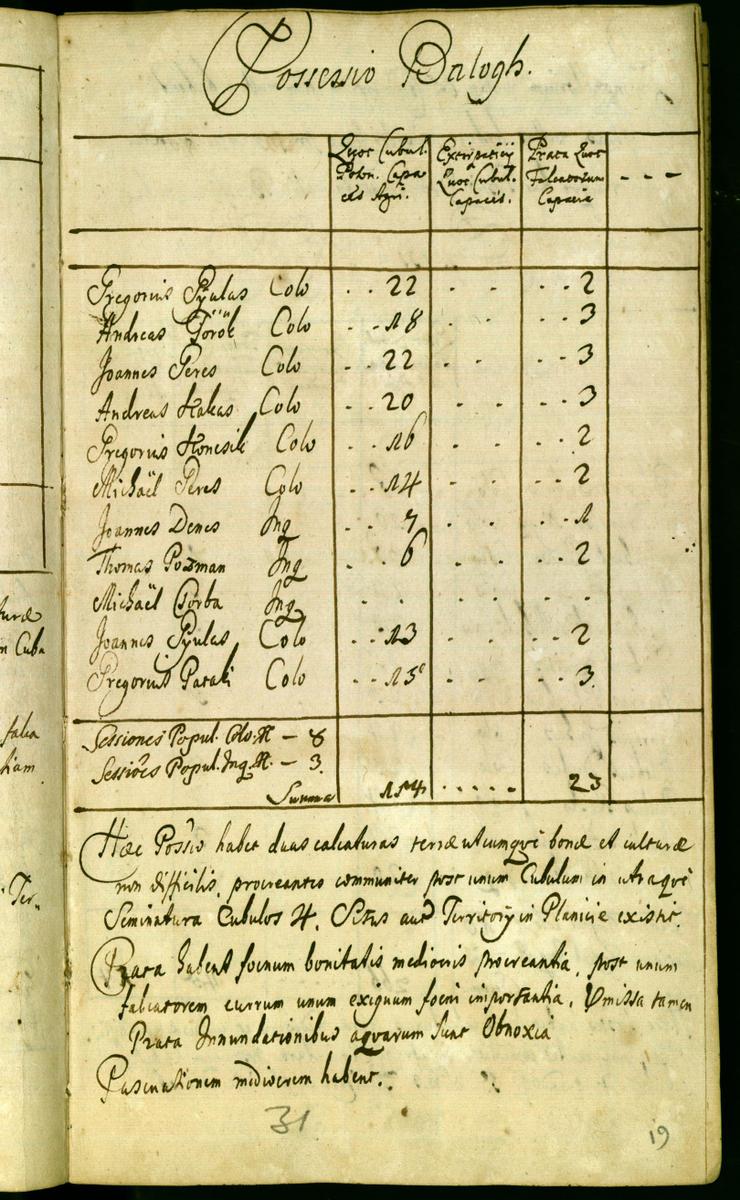 Possessio Balogh.
Quot Cubul. Poson. Capaces Agri.
Extirpaticÿ Quot Cubul. Capaces.
Prata Quot Falcatorum Capacia
- - -
Gregorius Gÿulas Colo . . 22 . . . . 2
Andreas Török Colo . . 18 . . . . 3
Joannes Peres Colo . . 22 . . . . 3
Andreas Hakas Colo . . 20 . . . . 3
Gregorius Colo . . 16 . . . . 2
Michaël Peres Colo . . 14 . . . . 2
Joannes Denes Inq . . 7 . . . . 1
Thomas Pozman Inq . . 6 . . . . 2
Michaël Csorba Inq . . . . .
Joannes Gÿulas Colo . . 13 . . . . 2
Gregorius Pataki Colo . . 15 . . . . 3
Sessiones Popul. Colo. - 8
Sessiões Popul. Inq. - 3.
Summa 154 . . . . . 23
Hæc Possio habet duas calcaturas terræ utcumqvè bonæ et culturæ
non difficilis, procreantes communiter post unum Cubulum in utraqvè
Seminatura Cubulos 4. Situs aut Territorÿ in Planicie existit.
Prata habent foenum bonitatis mediocris procreantia, post unum
falcatorem currum unum exiguum foeni importantia. Omissa tamen
Prata Innundationibus aqvarum sunt Obnoxia
Pascuationem mediocrem habent.
31
19